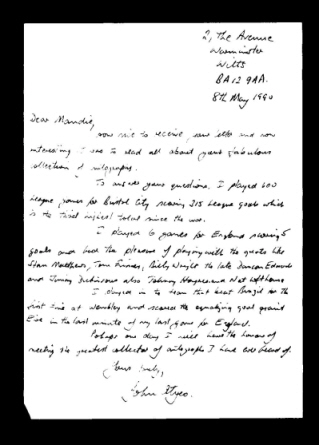 2, The Avenue
Warminster
Wilts
BA12 9AA.
8th May 1990
Dear Mandie,
how nice to receive your letter and how
interesting I was to read all about your fabulous
collection of autographs.
To answer your questions, I played 600
League games for Bristol City scoring 315 League goals which
is the third highest total since the war.
I played 6 games for England scoring 5
goals and had the pleasure of playing with the greats like
Stan Matthews, Tom Finney, Billy Wright the late Duncan Edwards
and Jimmy Dickinson also Johnny Haynes and Nat Lofthouse
I played in the team that beat Brazil for the
first time at Wembley and scored the equalizing goal against
Eire in the last minute of my last game for England.
Perhaps one day I will have the honour of
meeting the greatest collector of autographs I have ever heard of.
Yours truly,
John Atyeo.